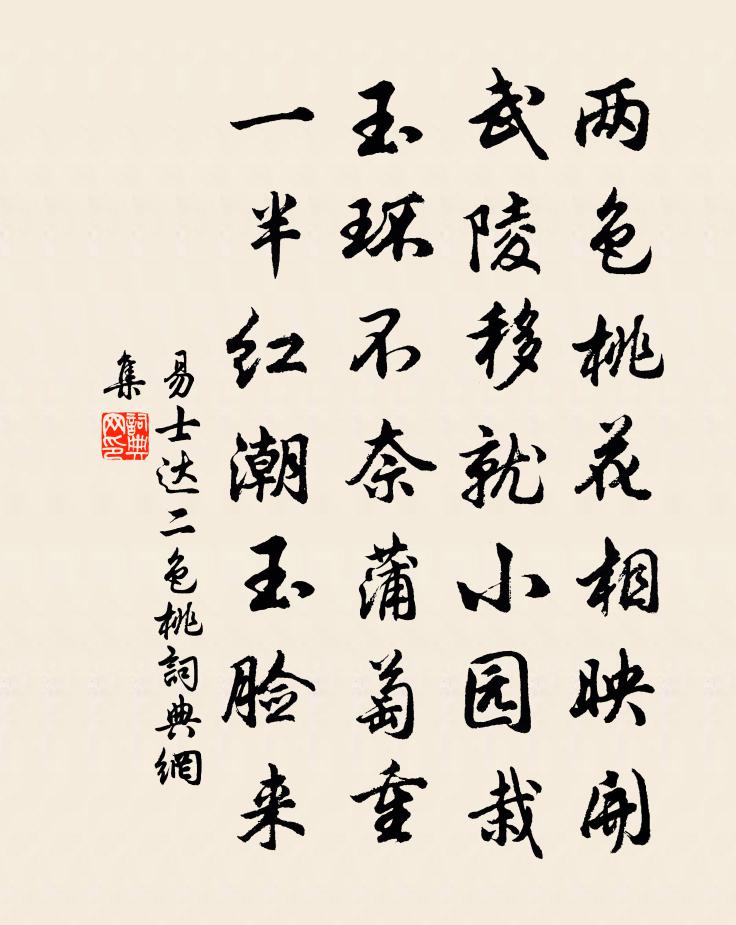 两色桃花相映开
武陵移就小园栽
玉环不奈蒲萄重
一半红潮玉脸来
易士达二色桃詞典網
集
詞典网印